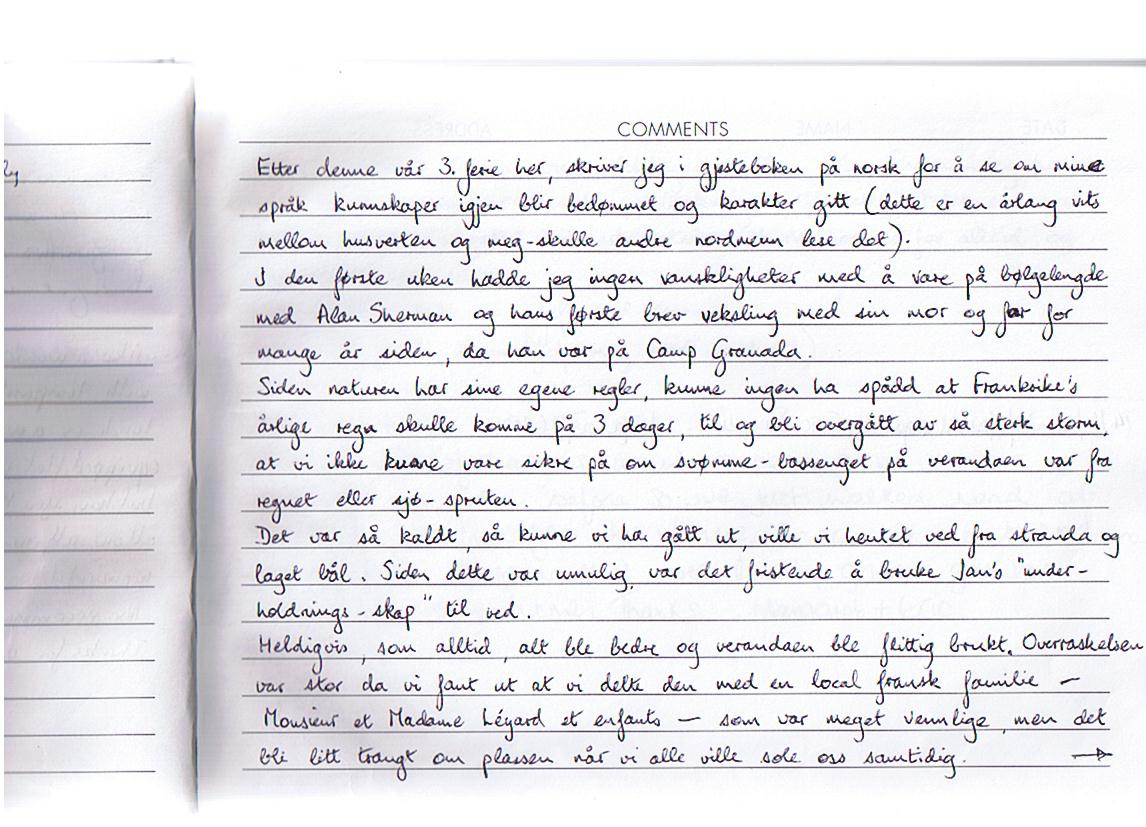 COMMENTS
Etter denne vår 3. ferie her, skriver jeg i gjesteboken på norsk for å se om mine
språk kunnskaper igjen blir bedømmet og karakter gitt (dette er en årlang vits
mellom husverten og meg-skulle andre nordmenn lese det).
I den første uken hadde jeg ingen vanskligheter med å vare på bølgelengde
med Alan Sherman og hans første brev veksling med sin mor og far for
mange år siden, da han var på Camp Granada.
Siden naturen har sine egene regler, kunne ingen ha spådd at Frankrike's
årlige regn skulle komme på 3 dager, til og bli overgått av så sterk storm,
at vi ikke kunne vare sikre på om svømme-bassenget på verandaen var fra
regnet eller sjø-spruten.
Det var så kaldt, så kunne vi ha gått ut, ville vi hentet ved fra stranda og
laget bål. Siden dette var umulig, var det fristende å bruke Jan's "under-
holdnings-skap" til ved.
Heldigvis, som alltid, alt ble bedre og verandaen ble flittig brukt. Overraskelsen
var stor da vi fant ut at vi delte den med en local fransk familie —
Monsieur et Madame Légard et enfants — som var meget vennlige, men det
bli litt trangt om plassen når vi alle ville sole oss samtidig. →